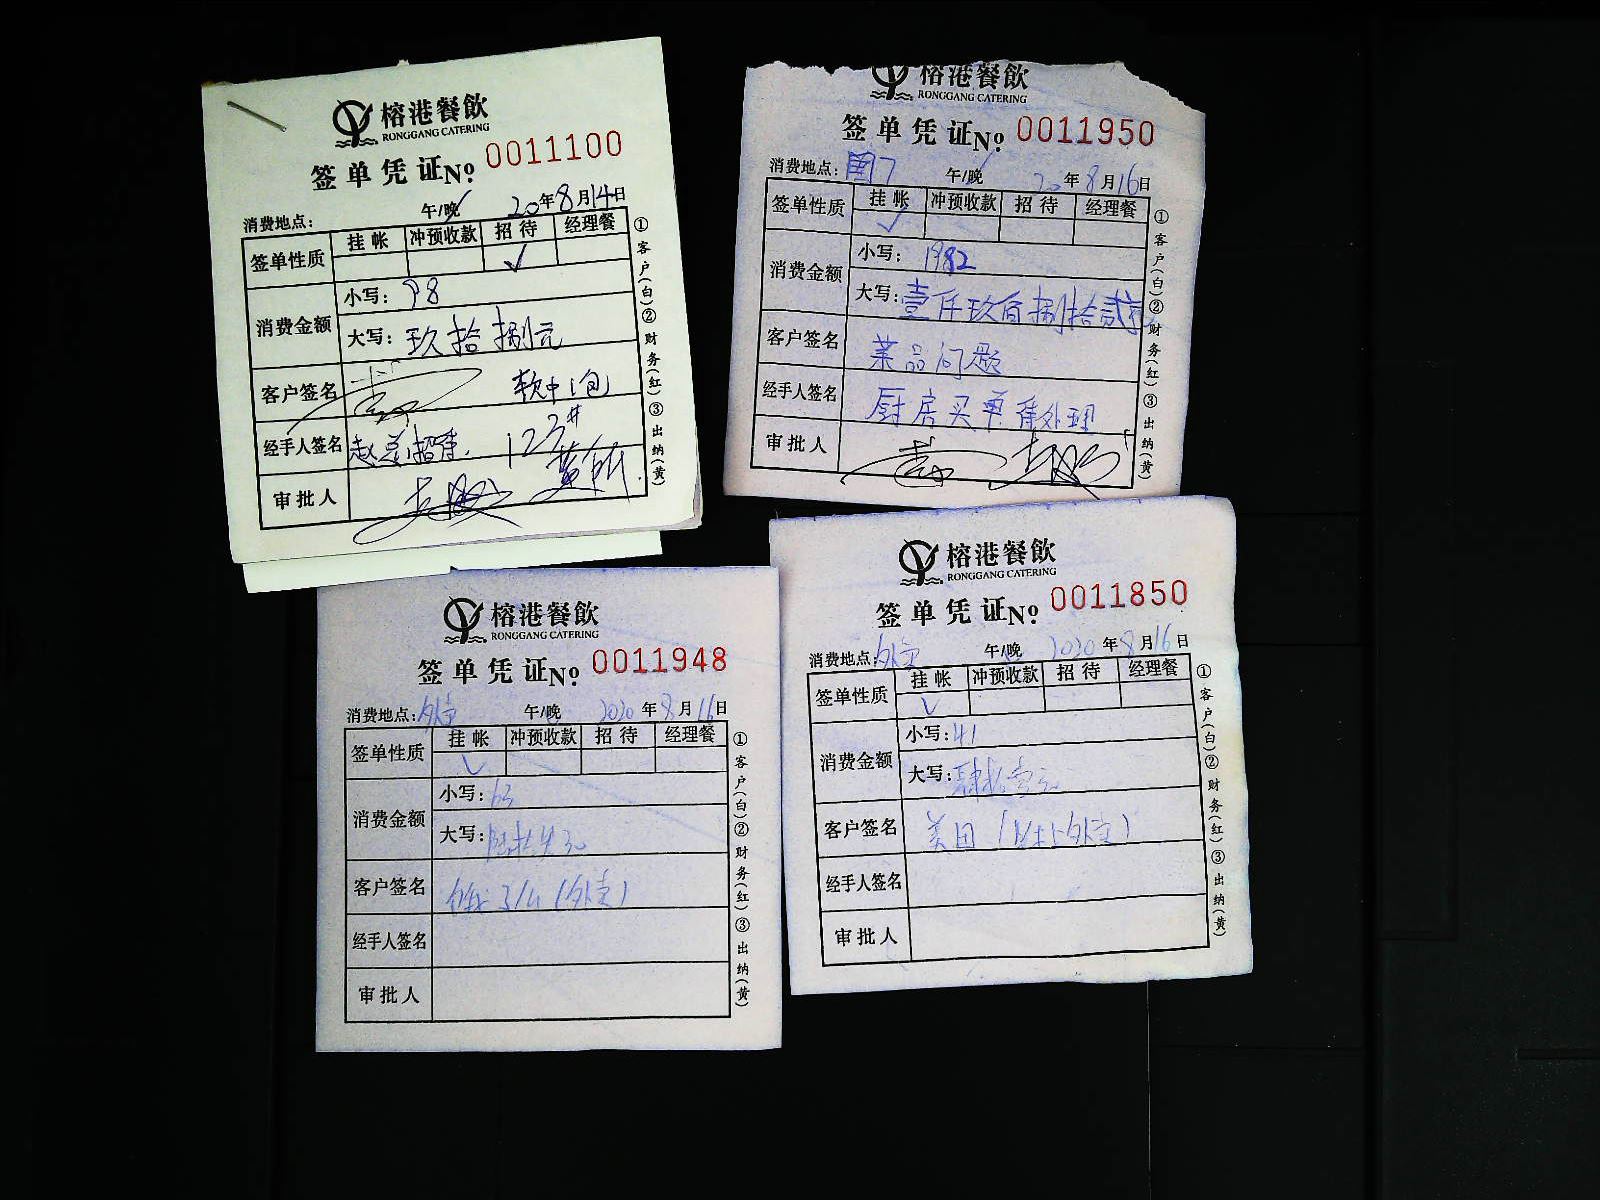 榕港餐飲
RONGGANG CATERING
签单凭证No. 0011100
消费地点: 午/晚 20年8月14日
签单性质 挂帐 冲预收款 招待 经理餐
✓
消费金额 小写: 98
大写: 玖拾捌元
客户签名 软中1包
经手人签名 赵总招待. 123#
审批人
①客户(白)②财务(红)③出纳(黄)
榕港餐飲
RONGGANG CATERING
签单凭证No. 0011950
消费地点: 国7 午/晚 20年8月16日
签单性质 挂帐 冲预收款 招待 经理餐
✓
消费金额 小写: 1982
大写: 壹仟玖佰捌拾贰元
客户签名 菜品问题
经手人签名 厨房买单待处理
审批人
①客户(白)②财务(红)③出纳(黄)
榕港餐飲
RONGGANG CATERING
签单凭证No. 0011948
消费地点: 外卖 午/晚 2020年8月16日
签单性质 挂帐 冲预收款 招待 经理餐
✓
消费金额 小写: 63
大写: 陆拾叁元
客户签名 饿了么(外卖)
经手人签名
审批人
①客户(白)②财务(红)③出纳(黄)
榕港餐飲
RONGGANG CATERING
签单凭证No. 0011850
消费地点: 外卖 午/晚 2020年8月16日
签单性质 挂帐 冲预收款 招待 经理餐
✓
消费金额 小写: 41
大写: 肆拾壹元
客户签名 美团 外卖)
经手人签名
审批人
①客户(白)②财务(红)③出纳(黄)